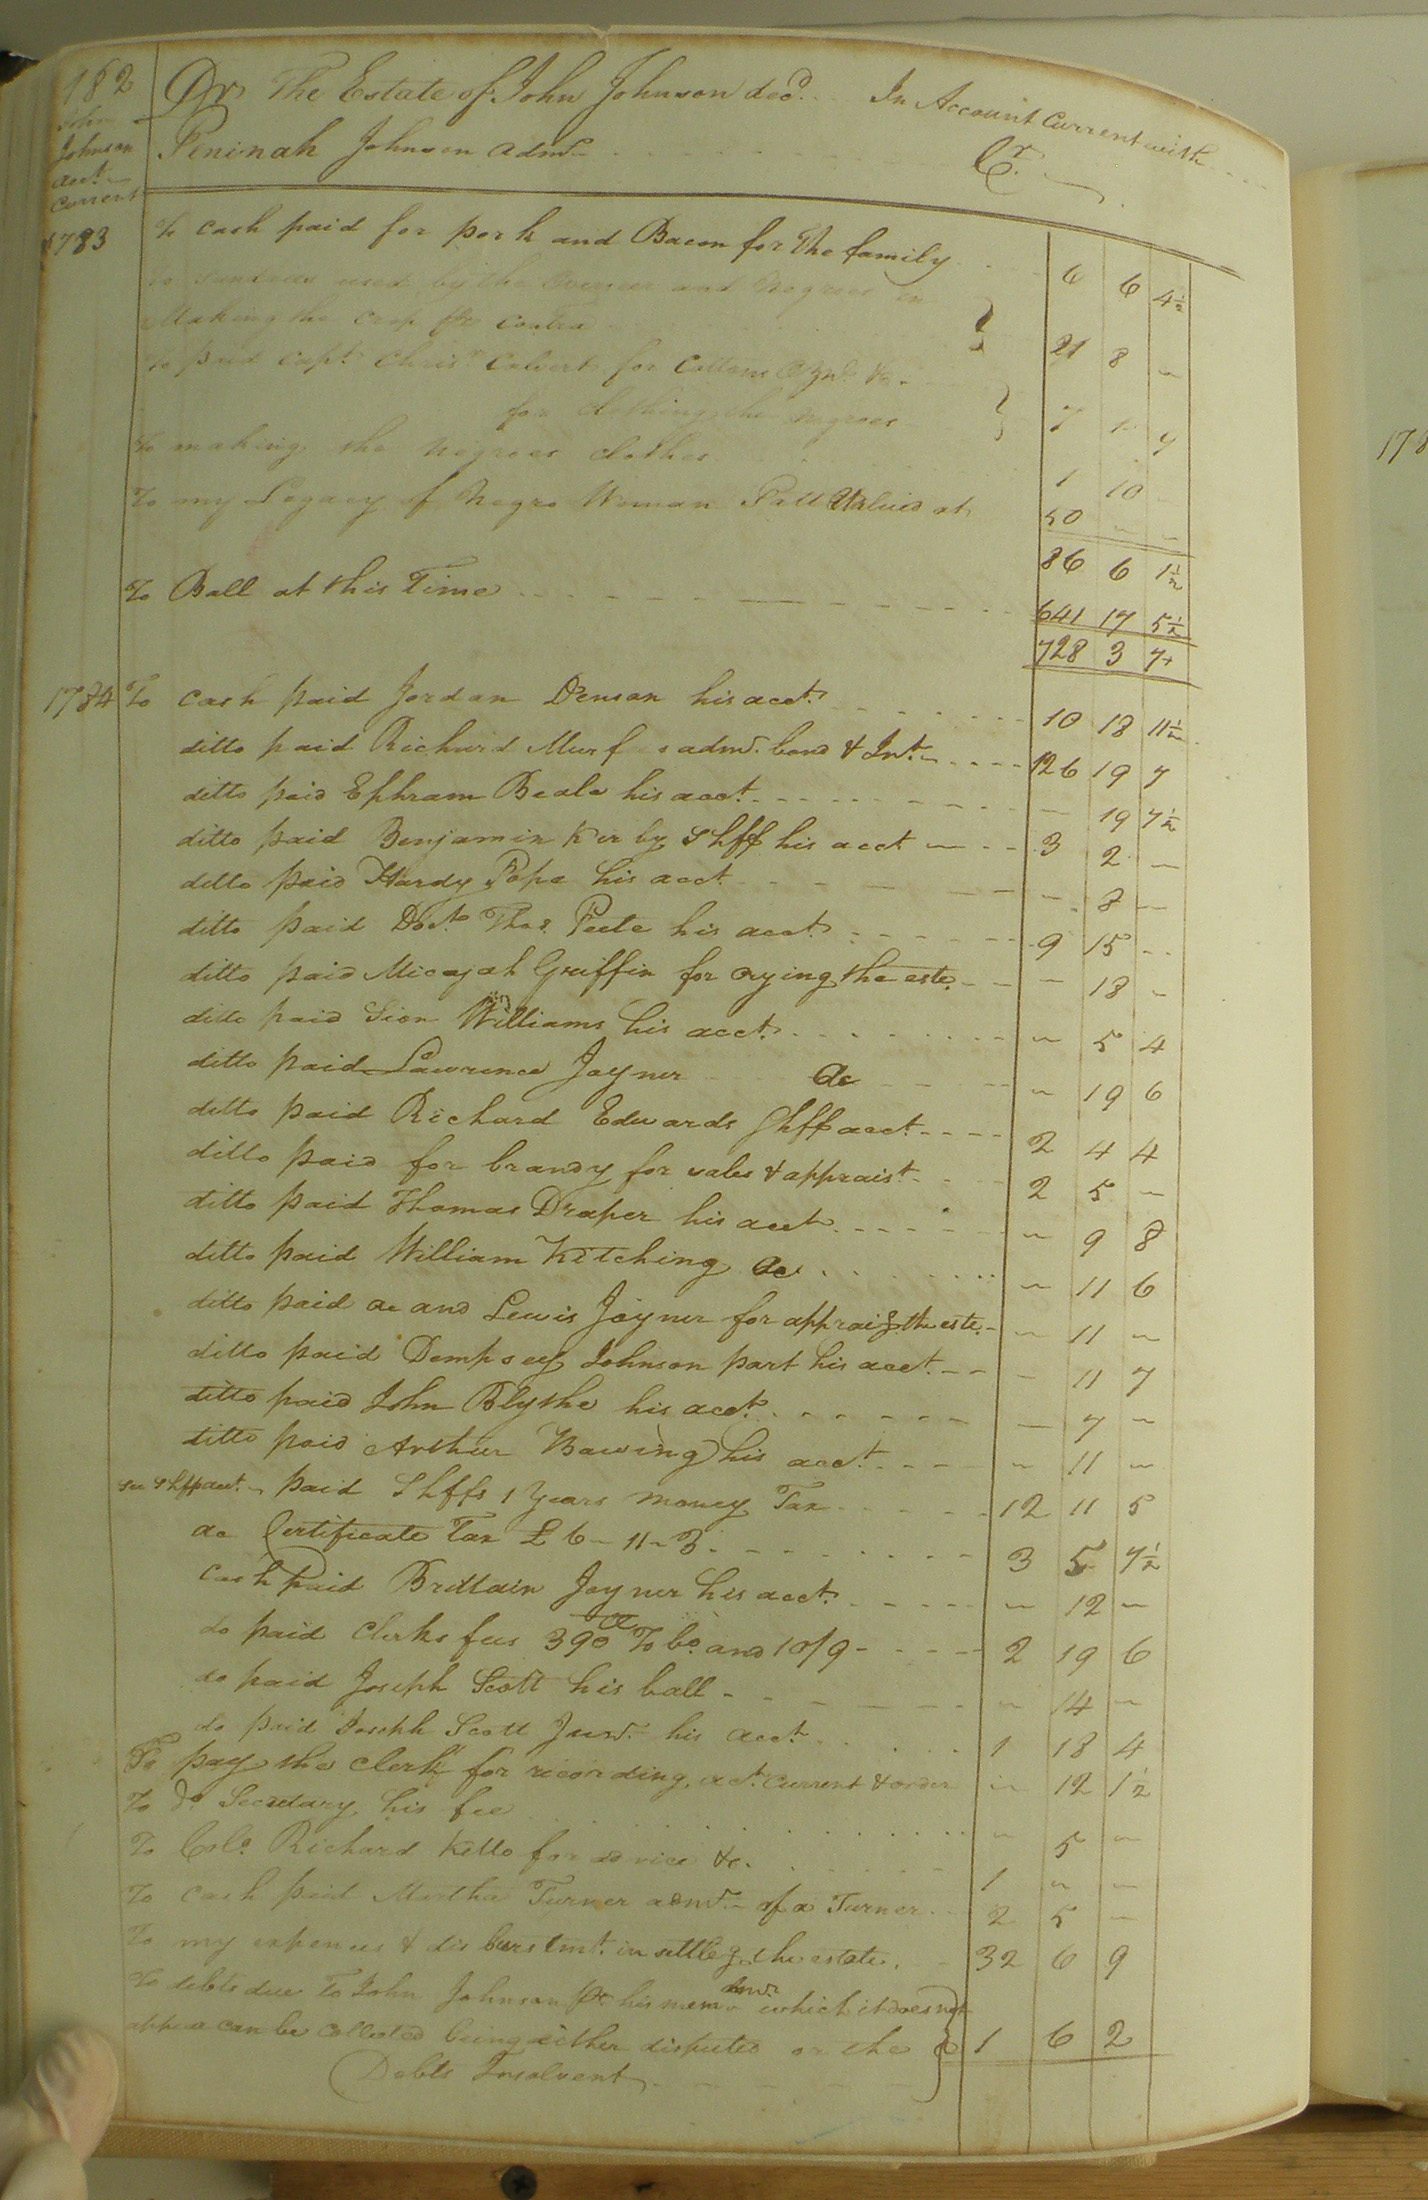 182
John
Johnson
acct.
Current
Dr. The Estate of John Johnson decd. In Account Current with
Peninah Johnson admr. Cr.
1783 To cash paid for pork and Bacon for the family 6 6 4½
To Sundries used by the Overseer and Negroes in
Making the crop pr contra 21 8 —
To paid Capt. Chris. Calvert for Cottons &c.
for clothing the Negroes 7 1 9
To making the Negroes clothes 1 10 —
To my Legacy of Negro Woman Patt Valued at 50 — —
86 6 1½
To Ball at this Time 641 17 5½
728 3 7
1784 To cash paid Jordan Denson his acct. 10 18 11½
ditto paid Richard Murf s admr. bond & Int. 126 19 7
ditto paid Ephram Beale his acct. — 19 7½
ditto paid Benjamin Kirby Shff his acct 3 2 —
ditto paid Hardy Pope his acct — 8 —
ditto paid Doct. Thos. Peete his acct. 9 15 —
ditto paid Micajah Griffin for crying the este. — 18 —
ditto paid Sion Williams his acct. — 5 4
ditto paid Lawrence Joyner do — 19 6
ditto paid Richard Edwards Shff acct. 2 4 4
ditto paid for brandy for sales & appraist. 2 5 —
ditto paid Thomas Draper his acct — 9 8
ditto paid William Kitching do — 11 6
ditto paid do and Lewis Joyner for appraisg the este. — 11 —
ditto paid Dempsey Johnson part his acct. — 11 7
ditto paid John Blythe his acct. — 7 —
ditto paid Arthur Bowing his acct. — 11 —
see Shff acct. paid Shffs 1 Years money Tax 12 11 5
do Certificate Tax £ 6 - 11 - 3 3 5 7½
cash paid Brittain Joyner his acct. — 12 —
do paid Clerks fees 390 Tobo. and 10/9 2 19 6
do paid Joseph Scott his ball — 14 —
do paid Joseph Scott Junr. his acct 1 18 4
To pay the Clerk for recording act. current & order — 12 1½
To Do. Secretary his fee — 5 —
To Colo. Richard Kello for advice &c. 1 — —
To cash paid Martha Turner admr. of a Turner 2 5 —
To my expences & disburstmt. in settleg the estate. 32 6 9
To debts due To John Johnson pr his mem which it does not
appear can be collected being either disputed or the 1 6 2
Debts Insolvent
178